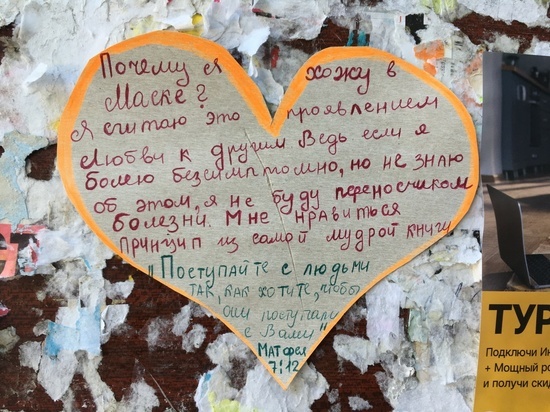 Почему я хожу в
Маске?
Я считаю это проявлением
Любви к другим Ведь если я
болею безсимптомно, но не знаю
об этом, я не буду переносчиком
болезни. Мне нравиться
принцип из самой мудрой книги
"Поступайте с людьми
так, как хотите, чтобы
они поступали
с Вами"
Матфея
7:12
ТУР
Подключи Ин
+ Мощный ро
и получи скид